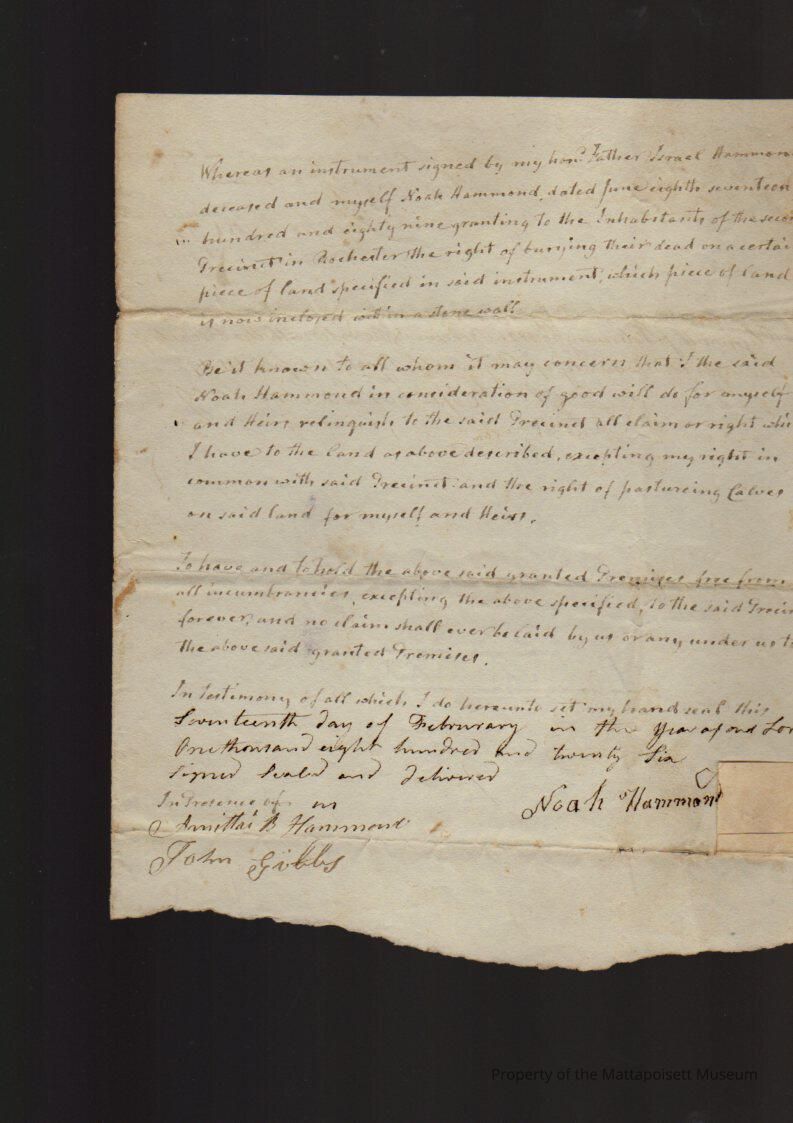 Whereas an instrument signed by my hond Father Israel Hammon
deceased and myself Noah Hammond, dated June eighth seventeen
hundred and eighty nine granting to the Inhabitants of the seco
Precinct in Rochester the right of burying their dead on a certai
piece of land specified in said instrument, which piece of land
is now inclosed within a stone wall
Be it known to all whom it may concern that I the said
Noah Hammond in consideration of good will do for myself
and Heirs relinquish to the said Precinct all claim or right whi
I have to the land as above described, excepting my right in
common with said Precinct and the right of pastureing Calves
on said land for myself and Heirs.
To have and to hold the above said granted Premises free from
all incumbrancies, excepting the above specified, to the said Precin
forever, and no claim shall ever be laid by us or any under us to
the above said granted Premises.
In testimony of all which I do hereunto set my hand seal this
Seventeenth day of Februrary in the year of our Lor
One thousand eight hundred and twenty Six
Signed Seald and delivered
In Presence of us
Noah Hammond
Amittai B Hammond
John Gibbs
Property of the Mattapoisett Museum